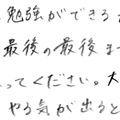 勉強ができる
最後の最後ま
ってください。大
やる気が出ると